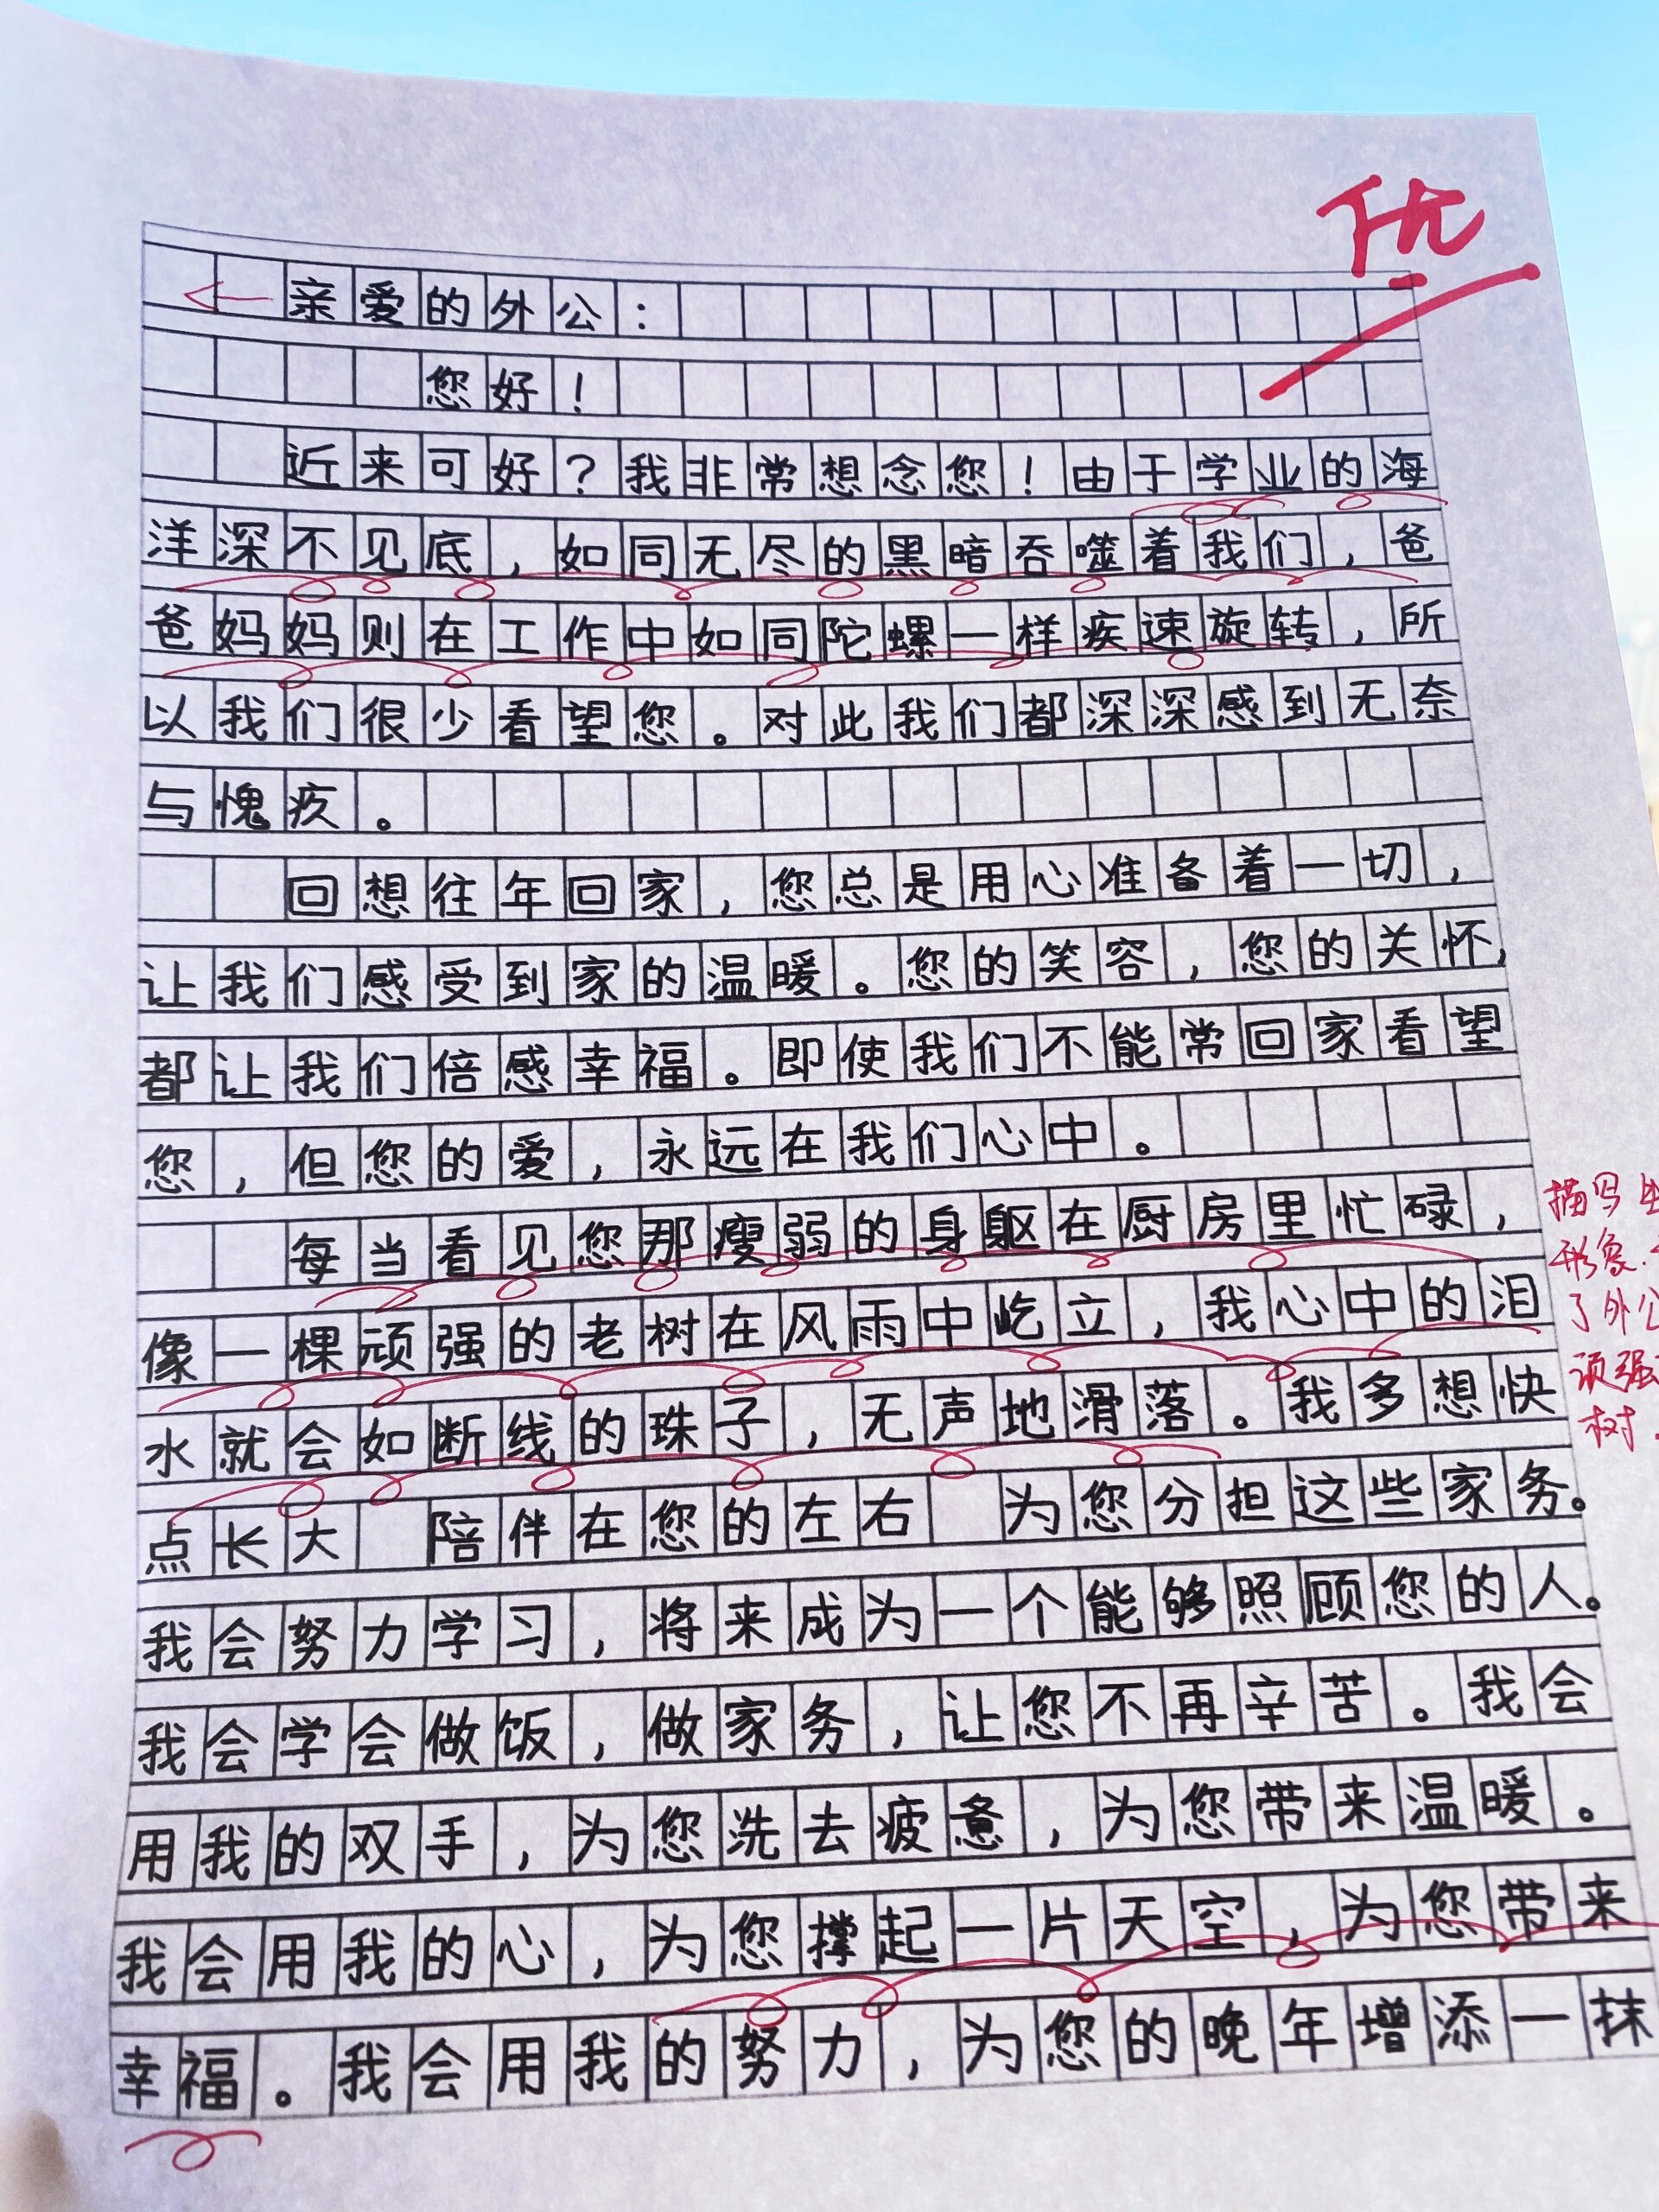 优
亲爱的外公：
您好！
近来可好？我非常想念您！由于学业的海
洋深不见底，如同无尽的黑暗吞噬着我们，爸
爸妈妈则在工作中如同陀螺一样疾速旋转，所
以我们很少看望您。对此我们都深深感到无奈
与愧疚。
回想往年回家，您总是用心准备着一切，
让我们感受到家的温暖。您的笑容，您的关怀，
都让我们倍感幸福。即使我们不能常回家看望
您，但您的爱，永远在我们心中。
每当看见您那瘦弱的身躯在厨房里忙碌，
像一棵顽强的老树在风雨中屹立，我心中的泪
水就会如断线的珠子，无声地滑落。我多想快
点长大 陪伴在您的左右 为您分担这些家务。
我会努力学习，将来成为一个能够照顾您的人。
我会学会做饭，做家务，让您不再辛苦。我会
用我的双手，为您洗去疲惫，为您带来温暖。
我会用我的心，为您撑起一片天空，为您带来
幸福。我会用我的努力，为您的晚年增添一抹
描写
形象.
了外公
顽强
树.